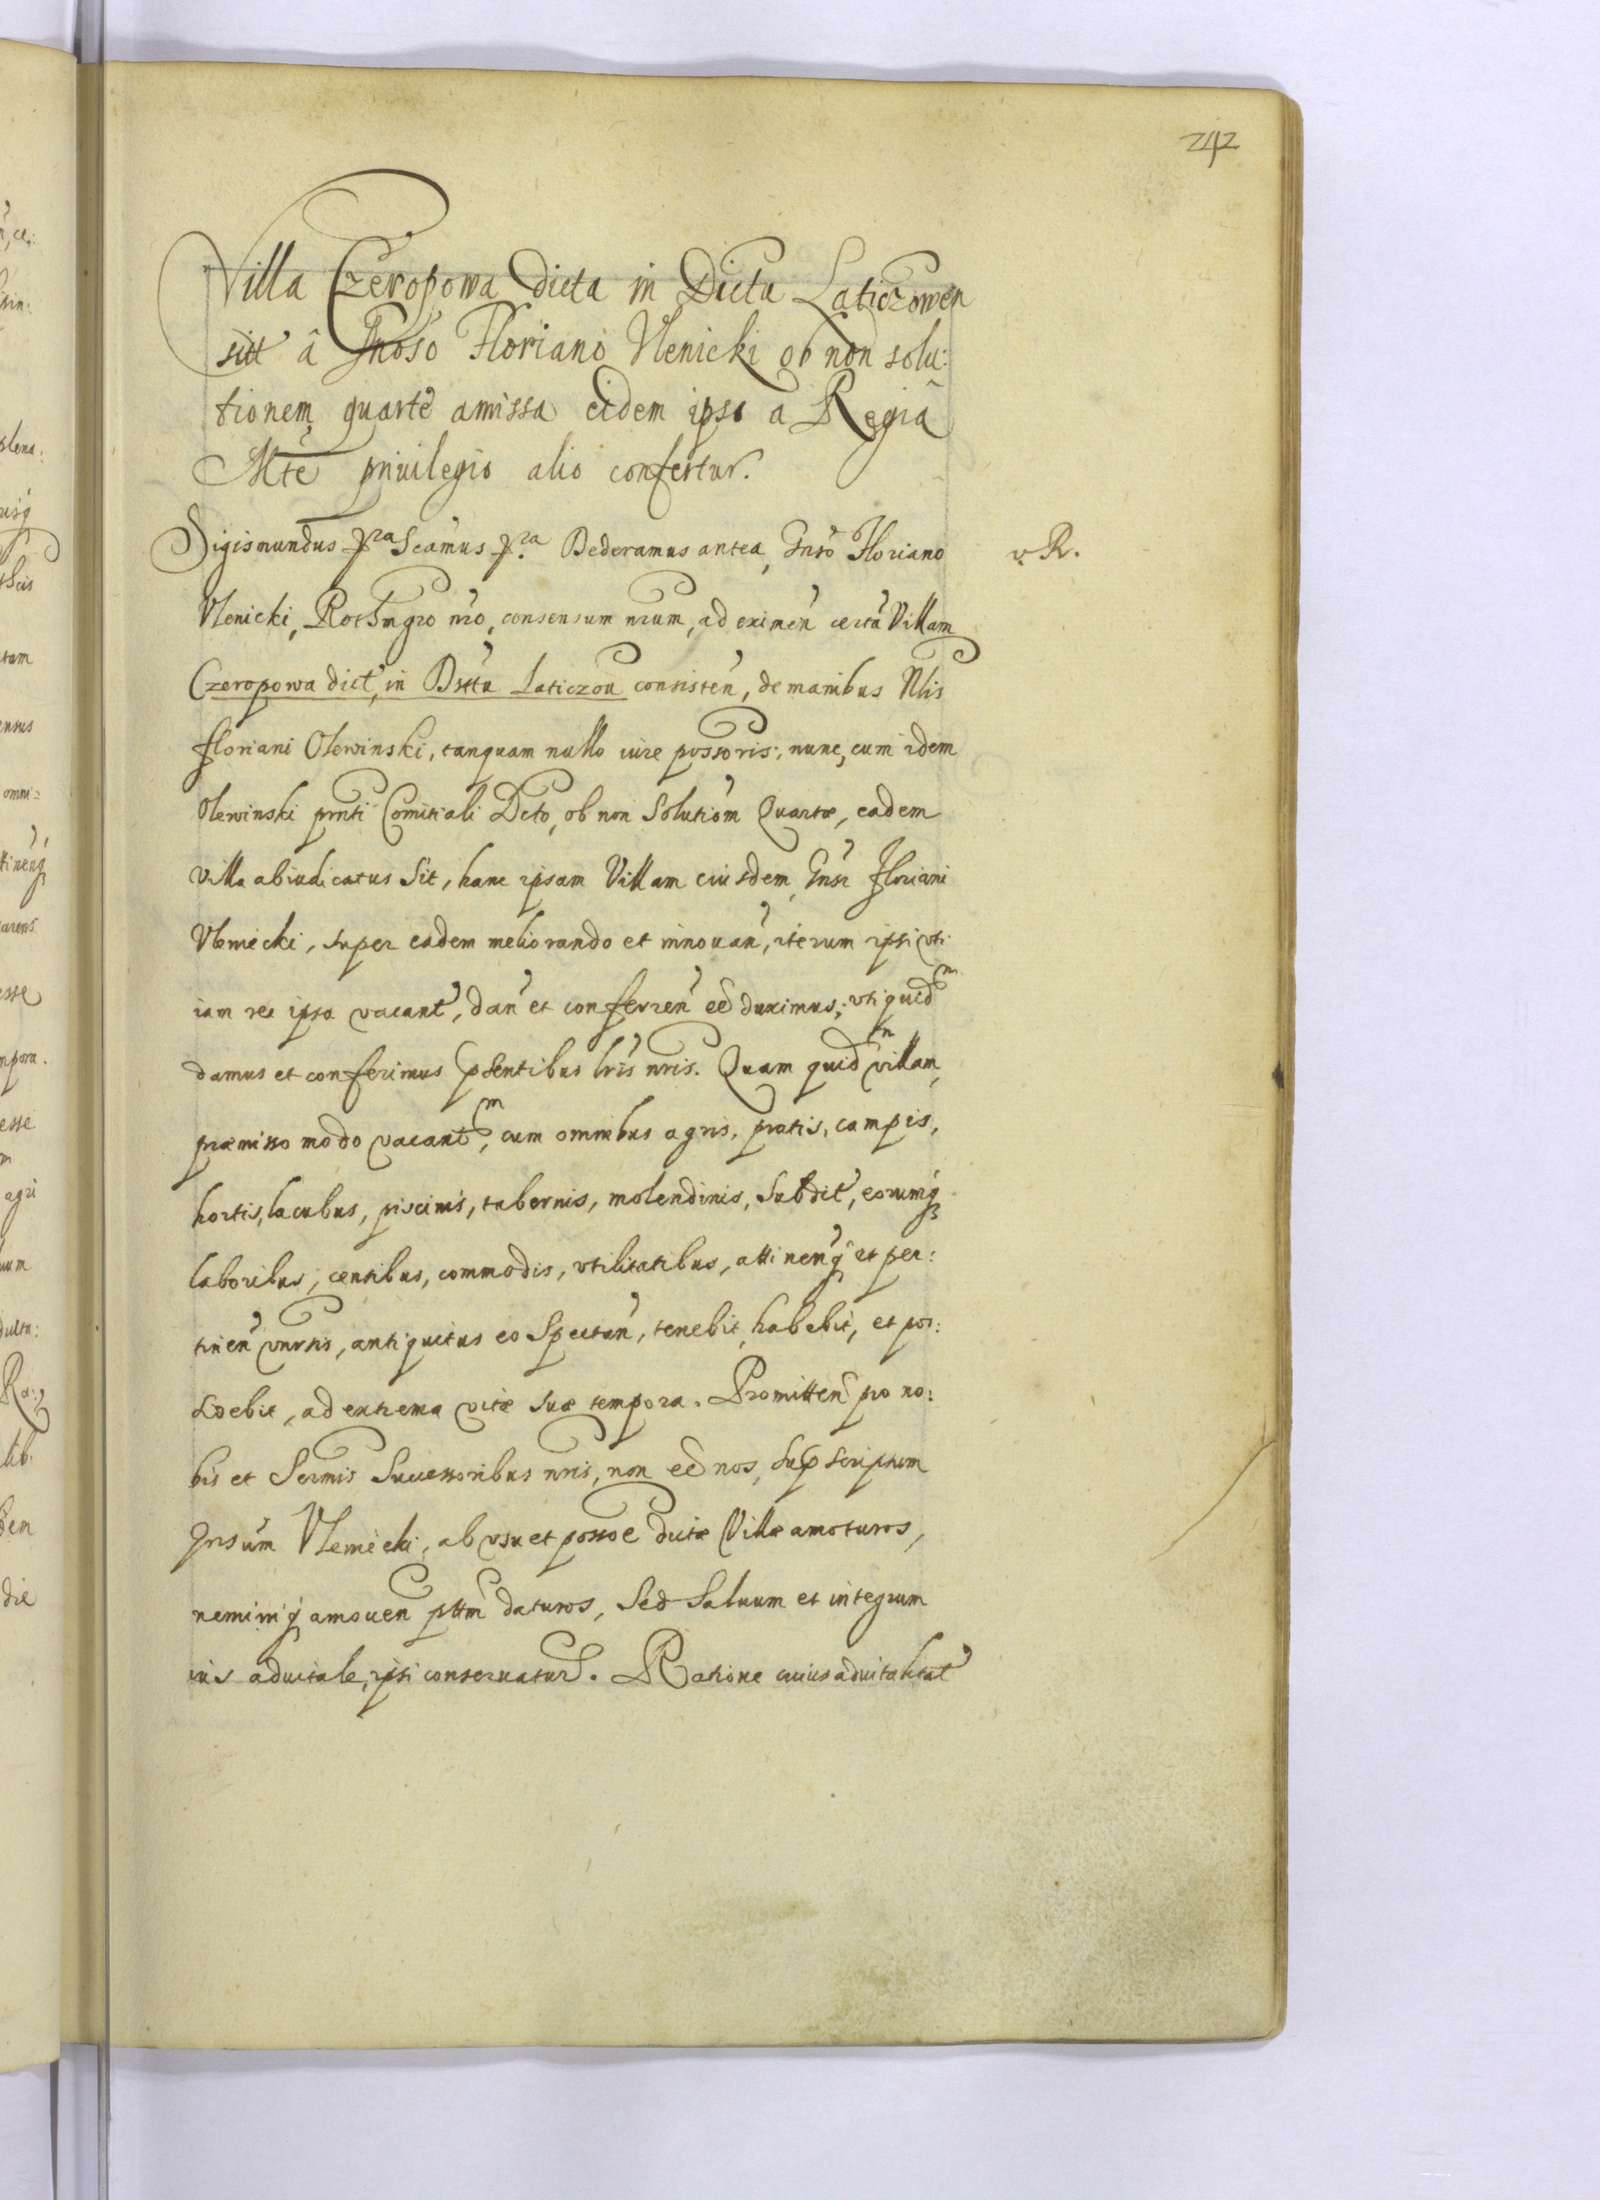 242
Villa Czeropowa dicta in Dictu Laticzowen
sitt â Gnoso Floriano Vlenicki ob non solu:
tionem quarte amissa eidem ipsi a Regiâ
Mtẽ priuilegio alio confertur.
Sigismundus pra Scãmus pra Dederamus antea, Gnsõ Floriano v. R.
Vlenicki, Rothmgro nrõ, consensum nrum, ad eximeñ certã Villam
Czeropowa dict, in Dsttu Laticzou consisteñ, de manibus Nlis
Floriani Olewinski, tanquam nullo iure possoris; nunc, cum idem
Olewinski pnti Comitiali Dcto, ob non Solutiõm Quartæ, eadem
villa abiudicatus Sit, hanc ipsam Villam eiusdem Gnsi Floriani
Vlenicki, super eadem meliorando et innouañ, iterum ipsi vti
iam re ipsa vacant, dañ et conferreñ eẽ duximus; vti quidm
damus et conferimus pSentibus lris nris. Quam quidm villam,
præmisso modo vacantm, cum omnibus agris, pratis, campis,
hortis, lacubus, piscinis, tabernis, molendinis, Subdit, eorumq
laboribus, censibus, commodis, vtilitatibus, attineñq et per:
tineñ vnrsis, antiquitus eo Spectañ, tenebit, habebit, et pos:
sidebit, ad extrema vitæ suæ tempora. Promitteñ pro no:
bis et Sermis Successoribus nris, non eẽ nos, supscriptum
Gnsum Vlenicki, ab vsu et possoe dictæ Villæ amoturos,
neminiq amoueñ pttm daturos, Sed Saluum et integrum
ius aduitale, ipsi conseruatur. Ratione cuius aduitalitat